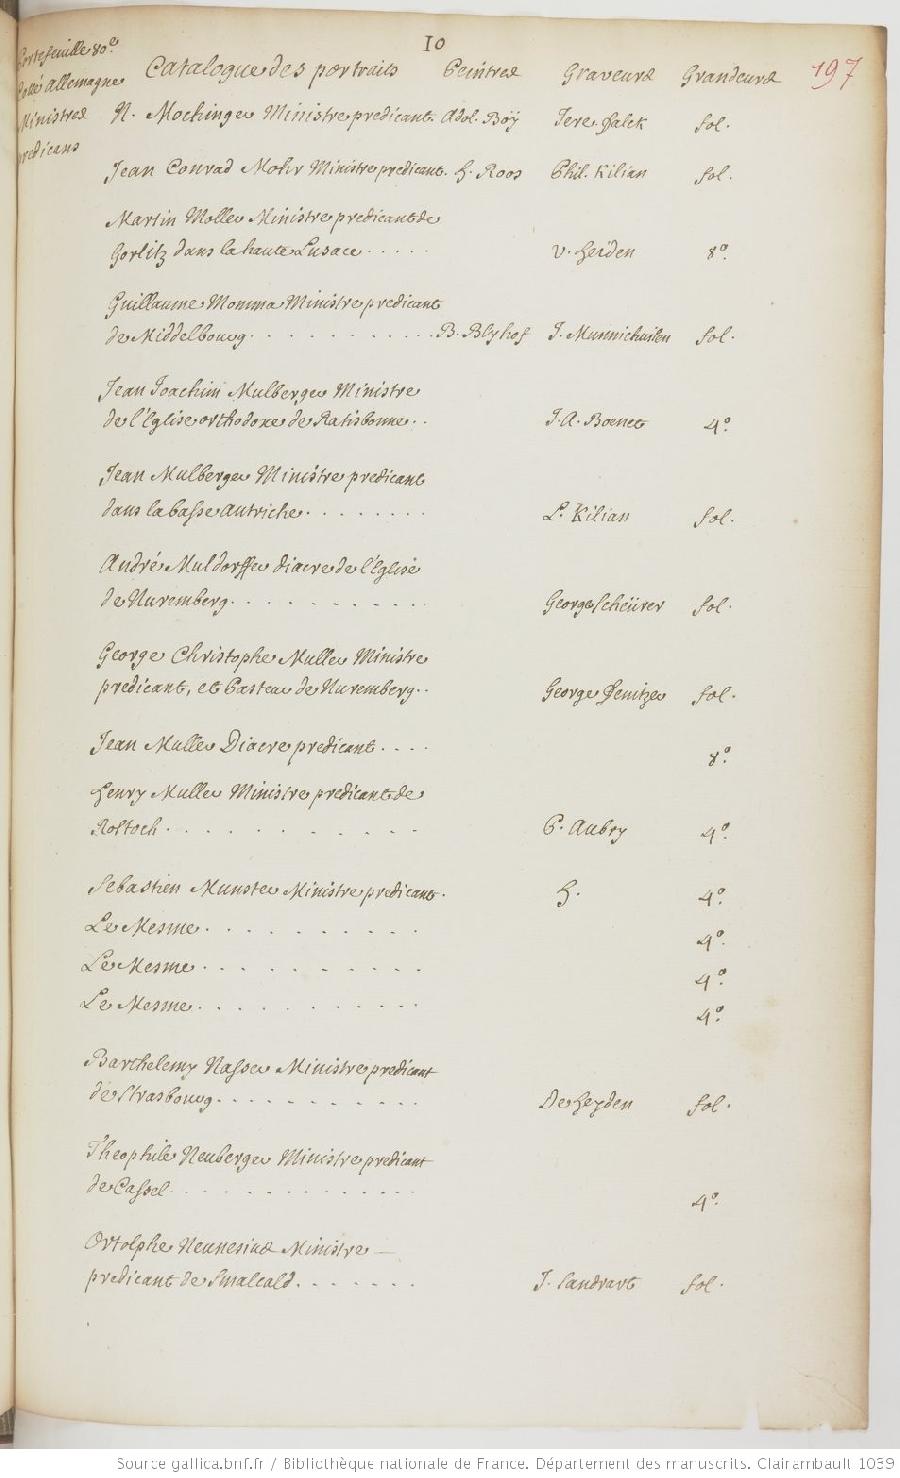 10
Portefeuille 80e.
Coné Allemagne
Ministres
predicans
Catalogue des portraits Peintres Graveurs Grandeurs 197
N. Mochinger Ministre predicant Adol. Böÿ Jere. Falck fol.
Jean Conrad Mohr Ministre predicant. H. Roos Phil. Kilian fol.
Martin Moller Ministre predicant de
Gorlitz dans la haute Lusace ..... v. Heiden 8o.
Guillaume Momma Ministre predicant
de Middelbourg ............ B. Blyhof J. Munnichuisen fol.
Jean Joachim Mulberger Ministre
de l'Eglise orthodoxe de Ratisbonne .. J. A. Boener 4o.
Jean Mulberger Ministre predicant
dans la basse Autriche ........ L. Kilian fol.
André Muldorffer diacre de l'Eglise
de Nuremberg ........... George Scheürer fol.
George Christophe Muller Ministre
predicant, et Pasteur de Nuremberg .. George Fenitzer fol.
Jean Muller Diacre predicant .... 8o.
Henry Muller Ministre predicant de
Rostoch .......... P. Aubry 4o.
Sebastien Munster Ministre predicant. H. 4o.
Le Mesme .......... 4o.
Le Mesme .......... 4o.
Le Mesme ........... 4o.
Barthelemy Nasser Ministre predicant
de Strasbourg ........... De Heyden fol.
Theophile Neuberger Ministre predicant
de Cassel ............. 4o.
Ortolphe Neunesius Ministre —
predicant de Smalcald ....... J. Sandrart fol.
Source gallica.bnf.fr / Bibliothèque nationale de France. Département des manuscrits. Clairambault 1039